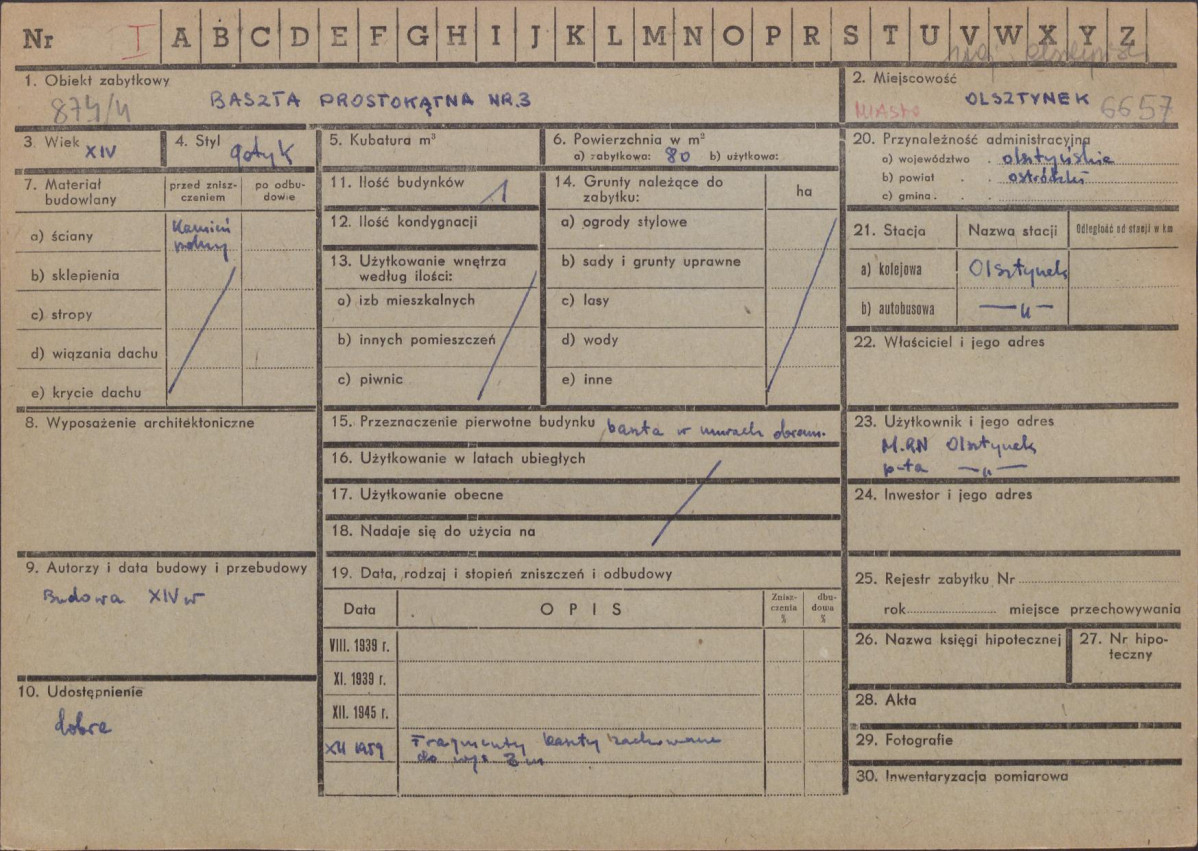 Nr I A B C D E F G H I J K L M N O P R S T U V W X Y Z
woj. olsztyńskie
1. Obiekt zabytkowy
874/4
BASZTA PROSTOKĄTNA NR.3
2. Miejscowość
MIASTO OLSZTYNEK 6657
3. Wiek XIV
4. Styl gotyk
5. Kubatura m³
6. Powierzchnia w m²
a) zabytkowa: 80 b) użytkowa:
7. Materiał budowlany
przed znisz-
czeniem
po odbu-
dowie
a) ściany
kamień
polny
b) sklepienia
c) stropy
d) wiązania dachu
e) krycie dachu
8. Wyposażenie architektoniczne
9. Autorzy i data budowy i przebudowy
Budowa XIV w
10. Udostępnienie
dobre
11. Ilość budynków 1
12. Ilość kondygnacji
13. Użytkowanie wnętrza
według ilości:
a) izb mieszkalnych
b) innych pomieszczeń
c) piwnic
14. Grunty należące do
zabytku:
ha
a) ogrody stylowe
b) sady i grunty uprawne
c) lasy
d) wody
e) inne
15. Przeznaczenie pierwotne budynku baszta w murach obronn.
16. Użytkowanie w latach ubiegłych
17. Użytkowanie obecne
18. Nadaje się do użycia na
19. Data, rodzaj i stopień zniszczeń i odbudowy
Data
OPIS
Znisz-
czenia
%
dbu-
dowa
%
VIII. 1939 r.
XI. 1939 r.
XII. 1945 r.
XII 1959 Fragmenty baszty zachowane
do wys 3 m
20. Przynależność administracyjna
a) województwo olsztyńskie
b) powiat ostródzki
c) gmina
21. Stacja
Nazwa stacji
Odległość od stacji w km
a) kolejowa Olsztynek
b) autobusowa —„—
22. Właściciel i jego adres
23. Użytkownik i jego adres
M.RN Olsztynek
p-ta —„—
24. Inwestor i jego adres
25. Rejestr zabytku Nr
rok miejsce przechowywania
26. Nazwa księgi hipotecznej
27. Nr hipo-
teczny
28. Akta
29. Fotografie
30. Inwentaryzacja pomiarowa